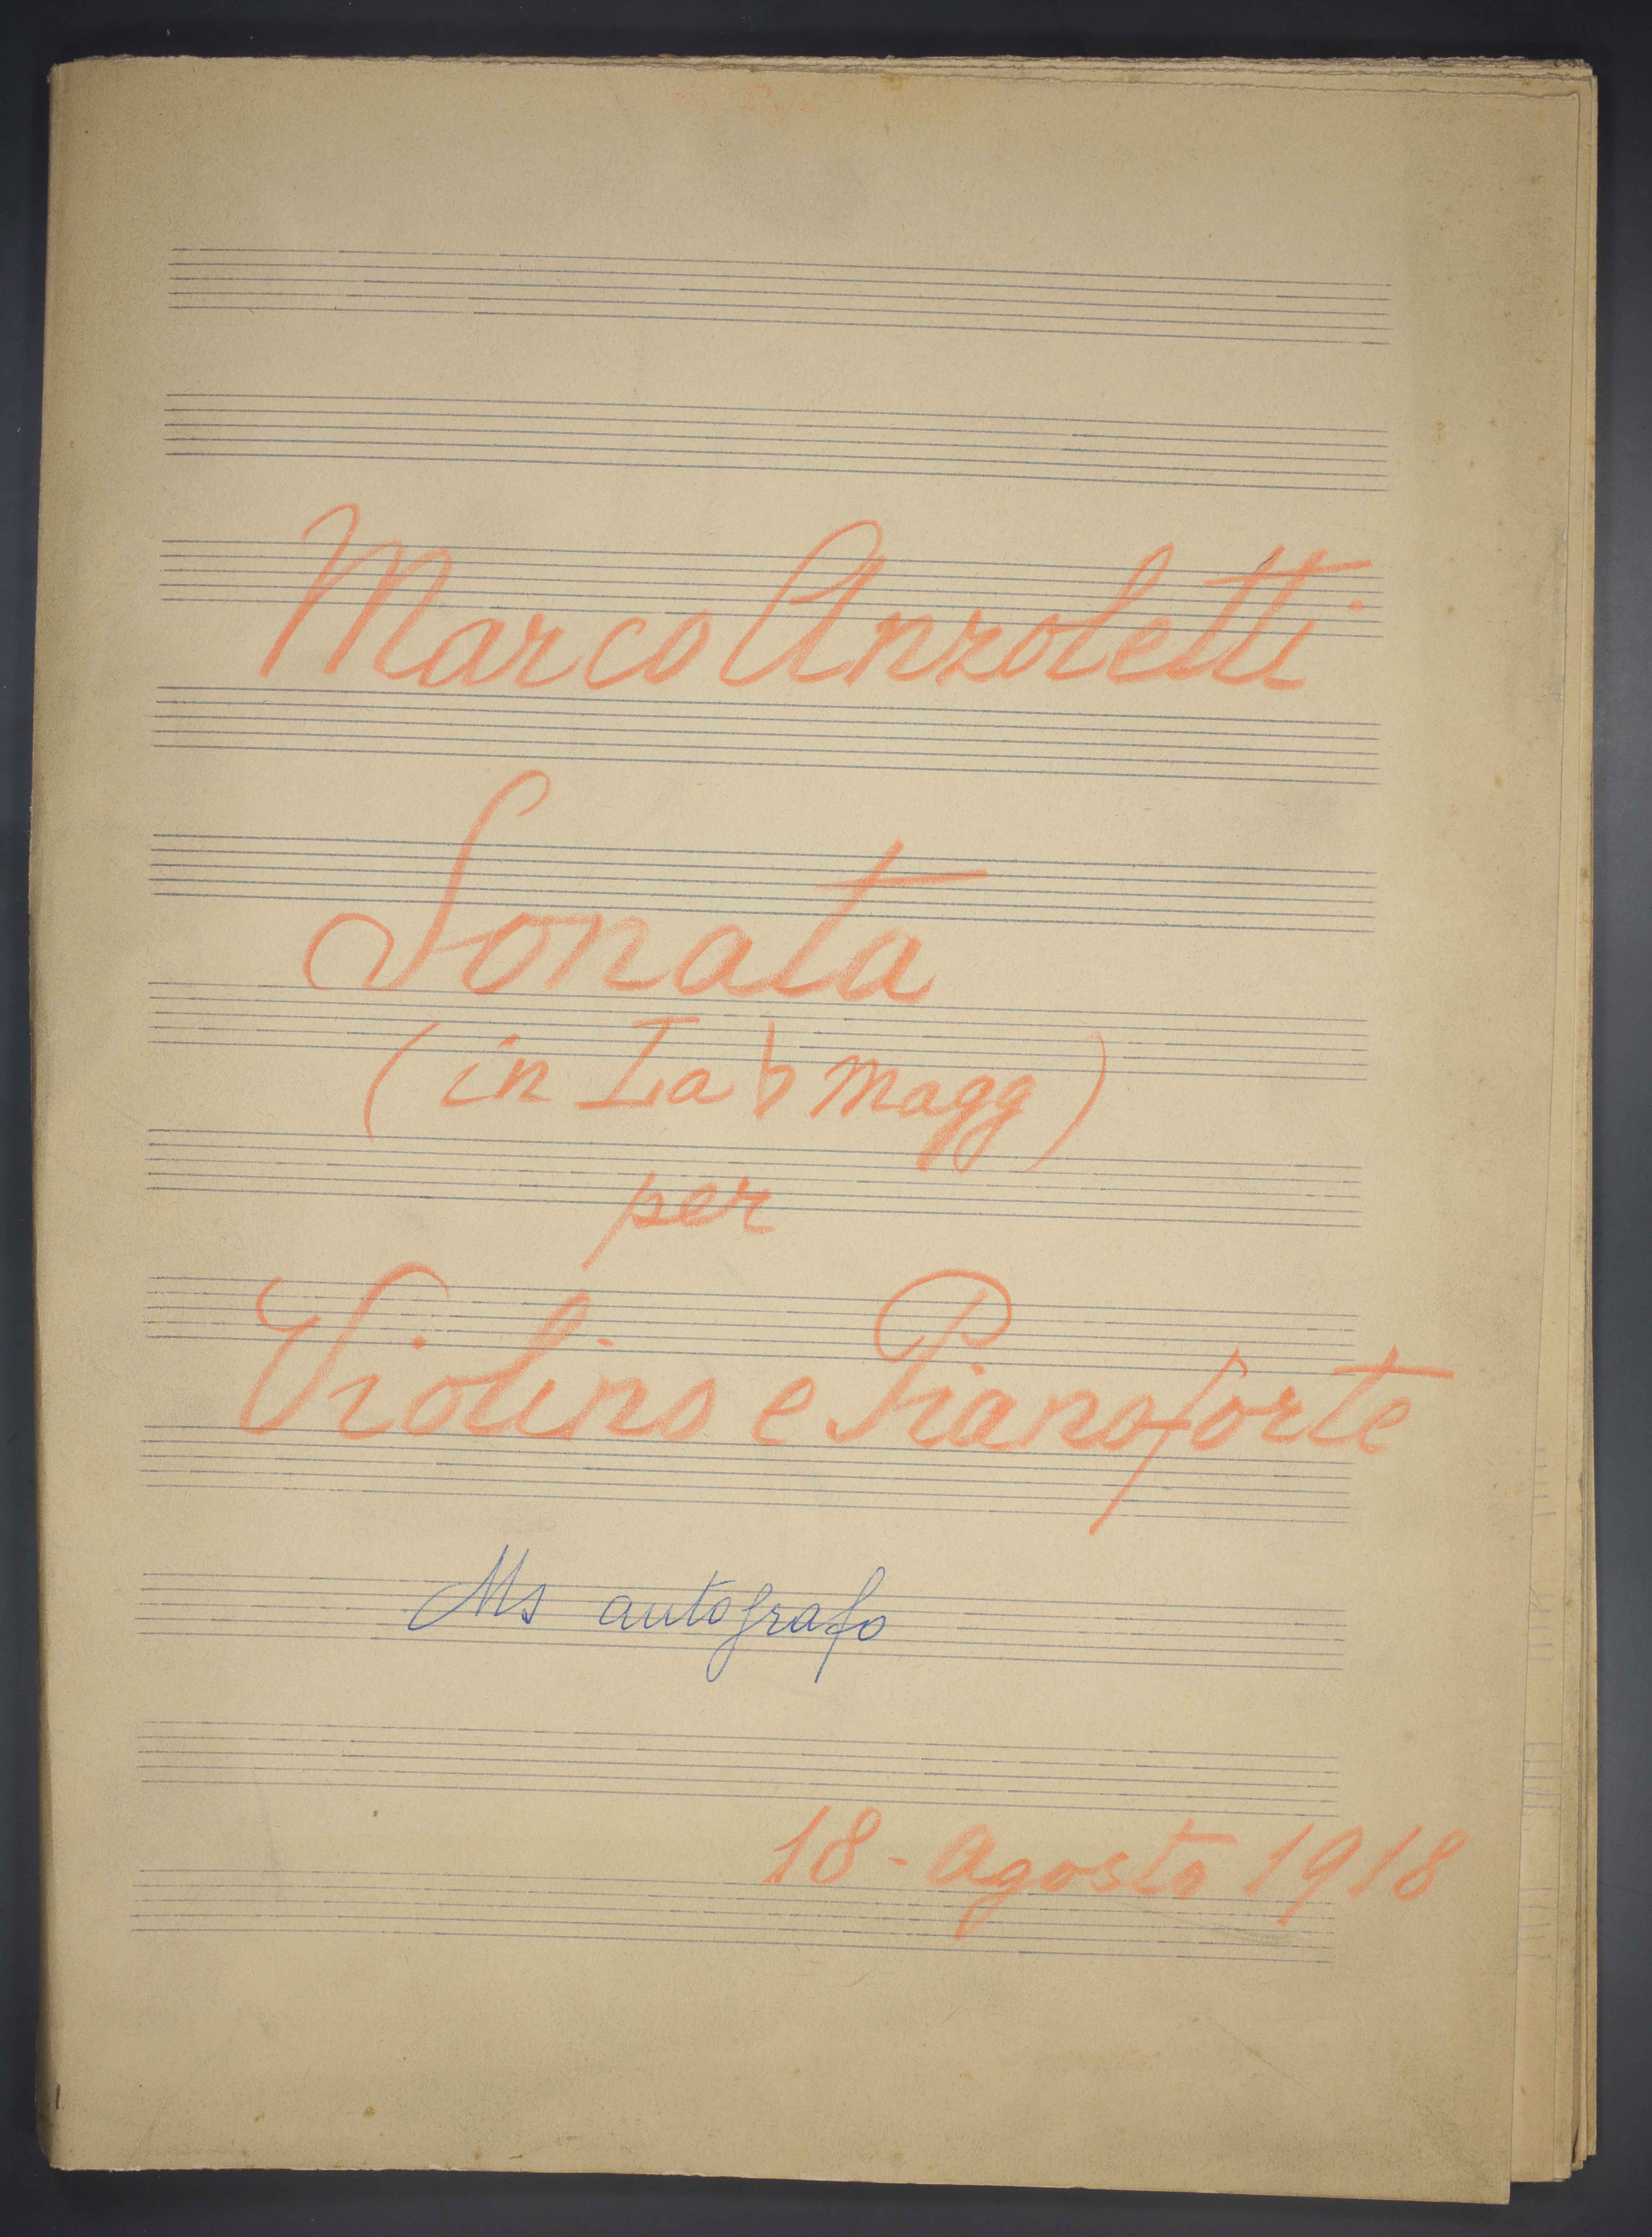 Marco Anzoletti
Sonata
(in La b magg)
per
Violino e Pianoforte
Ms autografo
18 - Agosto 1918